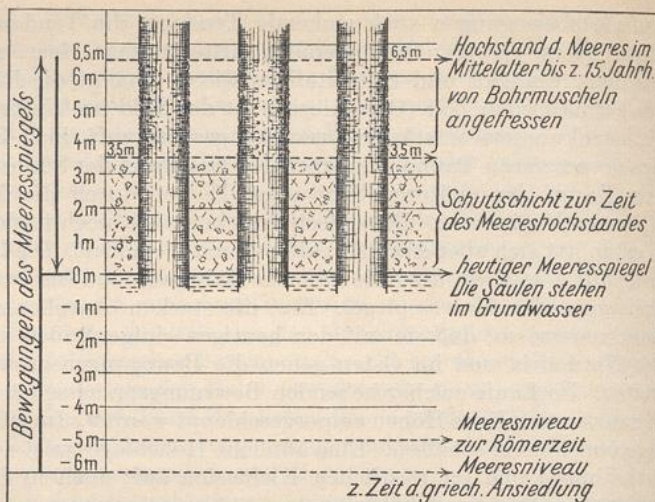 Bewegungen des Meeresspiegels
6,5m
6m
5m
4m
3,5m
3m
2m
1m
0m
-1m
-2m
-3m
-4m
-5m
-6m
6,5m
3,5m
Hochstand d. Meeres im
Mittelalter bis z. 15 Jahrh.
von Bohrmuscheln
angefressen
Schuttschicht zur Zeit
des Meereshochstandes
heutiger Meeresspiegel
Die Säulen stehen
im Grundwasser
Meeresniveau
zur Römerzeit
Meeresniveau
z. Zeit d. griech. Ansiedlung